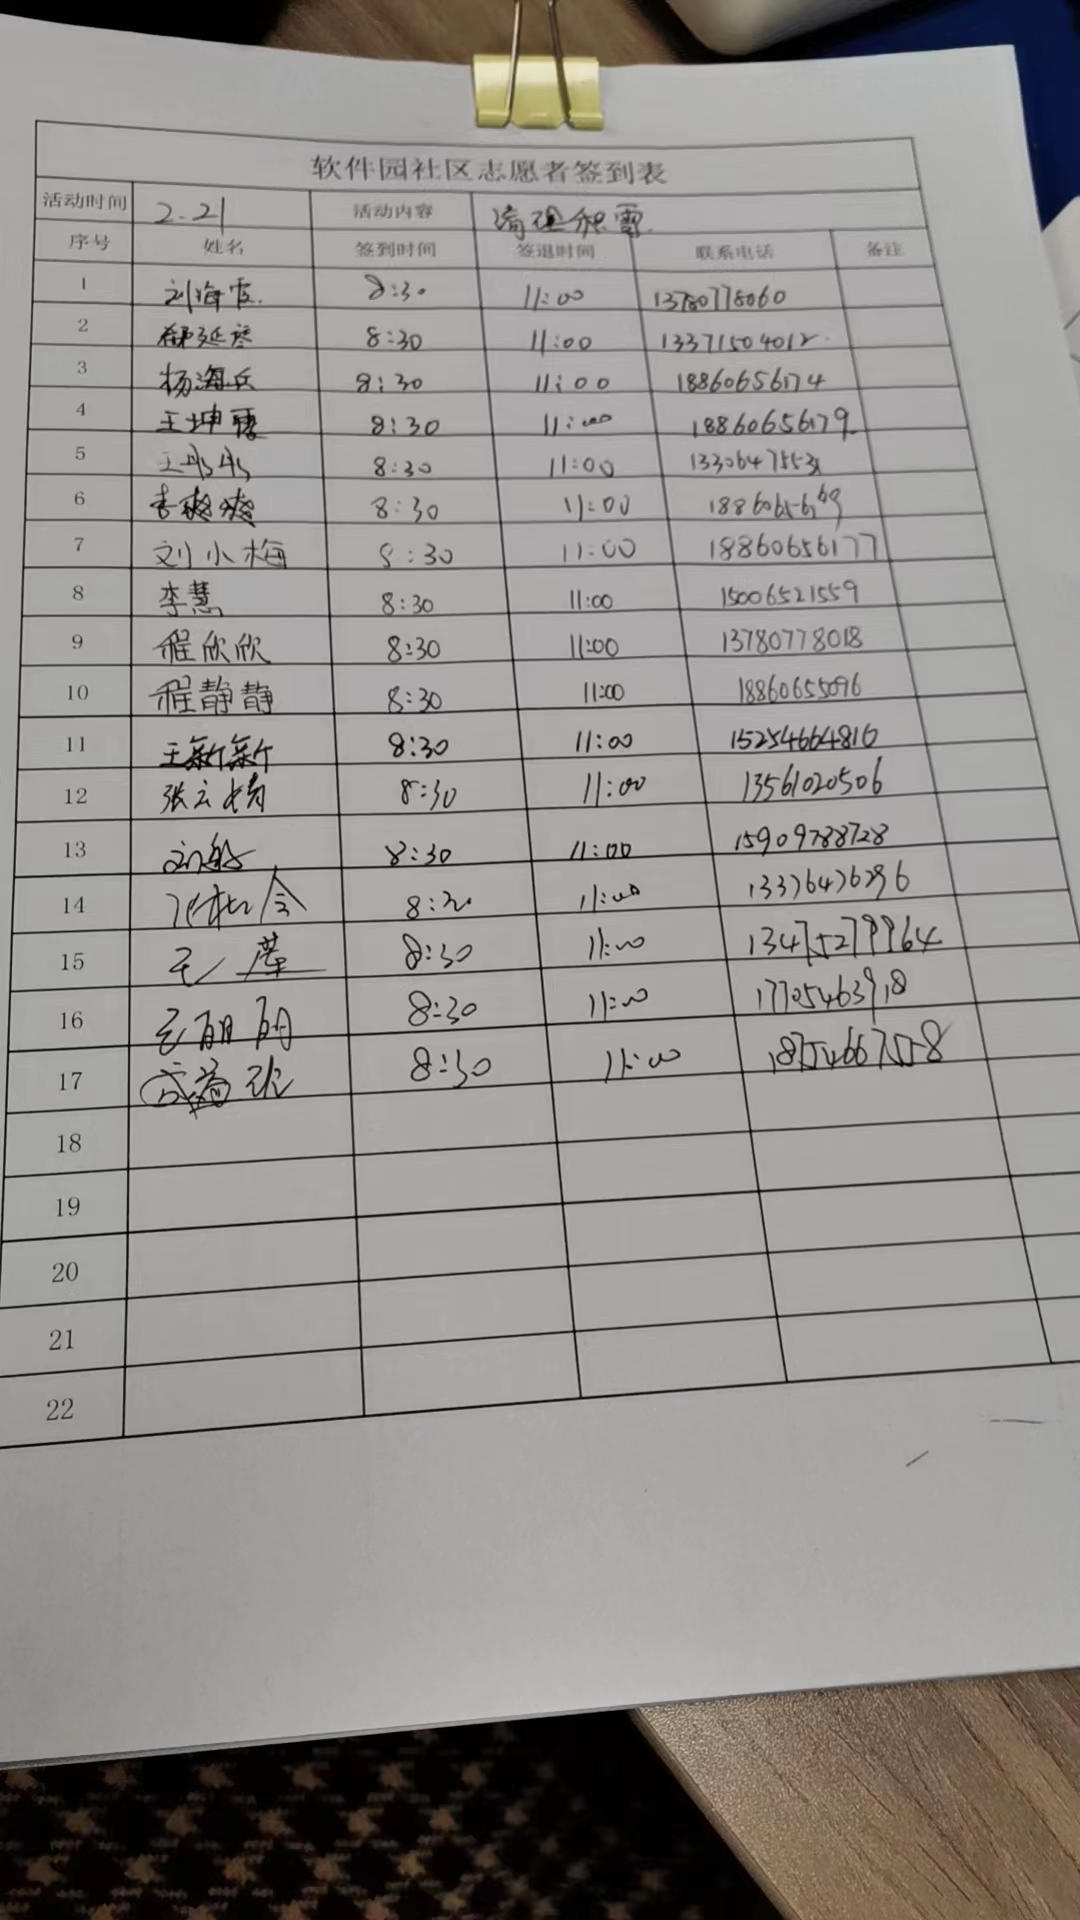 软件园社区志愿者签到表
活动时间 2.21 活动内容 清理积雪
序号 姓名 签到时间 签退时间 联系电话 备注
1 刘海霞 8:30 11:00 13780778060
2 延彦 8:30 11:00 13371504012
3 杨海兵 8:30 11:00 18860656174
4 王坤 8:30 11:00 18860656179
5 王彤彤 8:30 11:00
6 李爽爽 8:30 11:00
7 刘小梅 8:30 11:00 18860656177
8 李慧 8:30 11:00 15006521559
9 程欣欣 8:30 11:00 13780778018
10 程静静 8:30 11:00 18860655096
11 王新新 8:30 11:00 15254664810
12 张云婧 8:30 11:00 13561020506
13 刘 8:30 11:00 15909788728
14 8:30 11:00 13376476296
15 8:30 11:00
16 8:30 11:00 17705463918
17 8:30 11:00
18
19
20
21
22